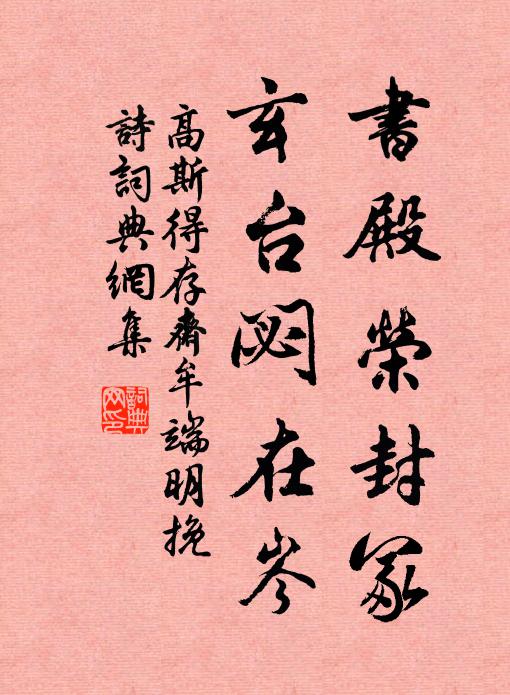 書殿榮封冢
玄台閟在岑
高斯得存齋牟端明挽
詩詞典網集
詞典網印